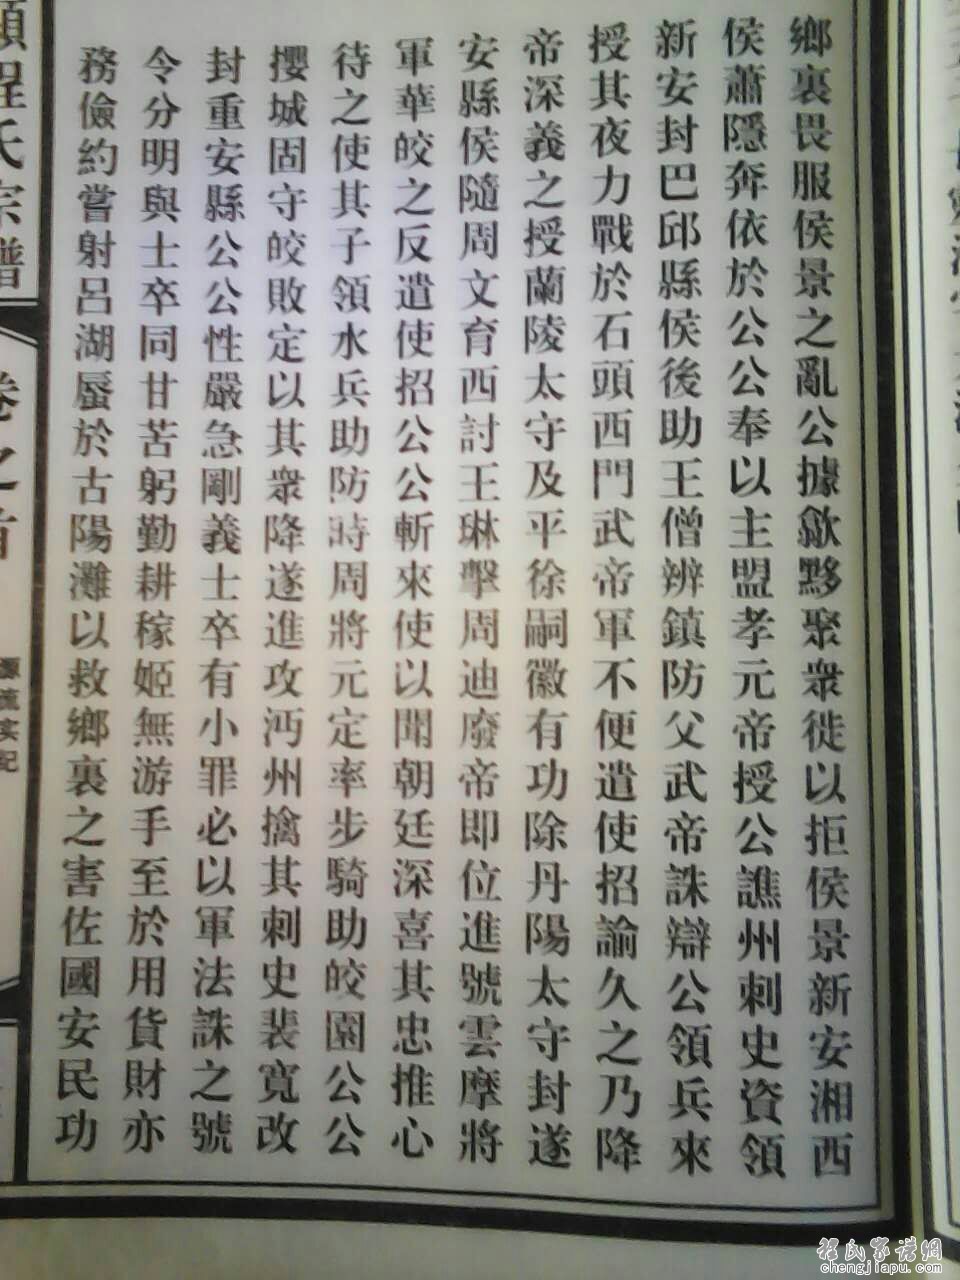 鄉裏畏服侯景之亂公據歙黟聚衆徙以拒侯景新安湘西
侯蕭隱奔依於公公奉以主盟孝元帝授公譙州刺史資領
新安封巴邱縣侯後助王僧辨鎮防父武帝誅辯公領兵來
授其夜力戰於石頭西門武帝軍不便遣使招諭久之乃降
帝深義之授蘭陵太守及平徐嗣徽有功除丹陽太守封遂
安縣侯隨周文育西討王琳擊周迪廢帝即位進號雲摩將
軍華皎之反遣使招公公斬來使以聞朝廷深喜其忠推心
待之使其子領水兵助防時周將元定率步騎助皎園公公
攖城固守皎敗定以其衆降遂進攻沔州擒其刺史裴寬改
封重安縣公公性嚴急剛義士卒有小罪必以軍法誅之號
令分明與士卒同甘苦躬勤耕稼姬無游手至於用貨財亦
務儉約嘗射呂湖蜃於古陽灘以救鄉裏之害佐國安民功
程氏宗譜
卷之首
源流实记
程氏家譜網
chengjiapu.com